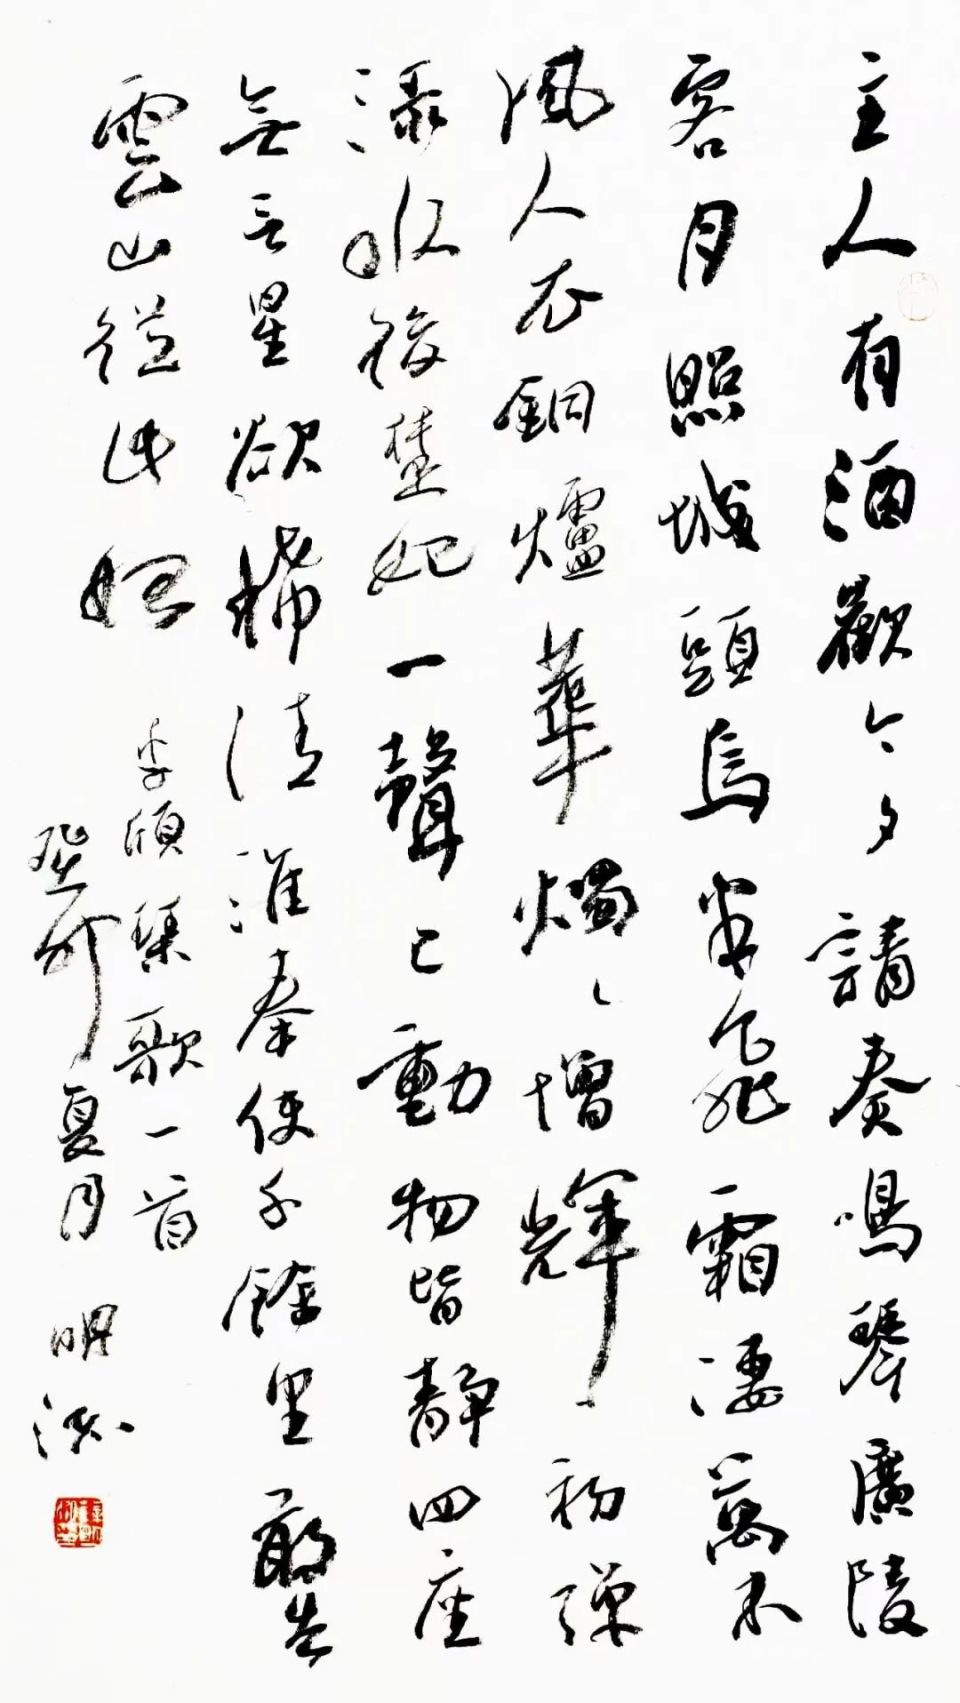 主人有酒歡今夕請奏鳴琴廣陵
客月照城頭烏半飛霜淒萬木
風入衣銅爐華燭々增輝初彈
淥水後楚妃一聲已動物皆靜四座
無言星欲稀清淮奉使千餘里敢告
雲山從此始
李頎琴歌一首
癸卯夏月 明